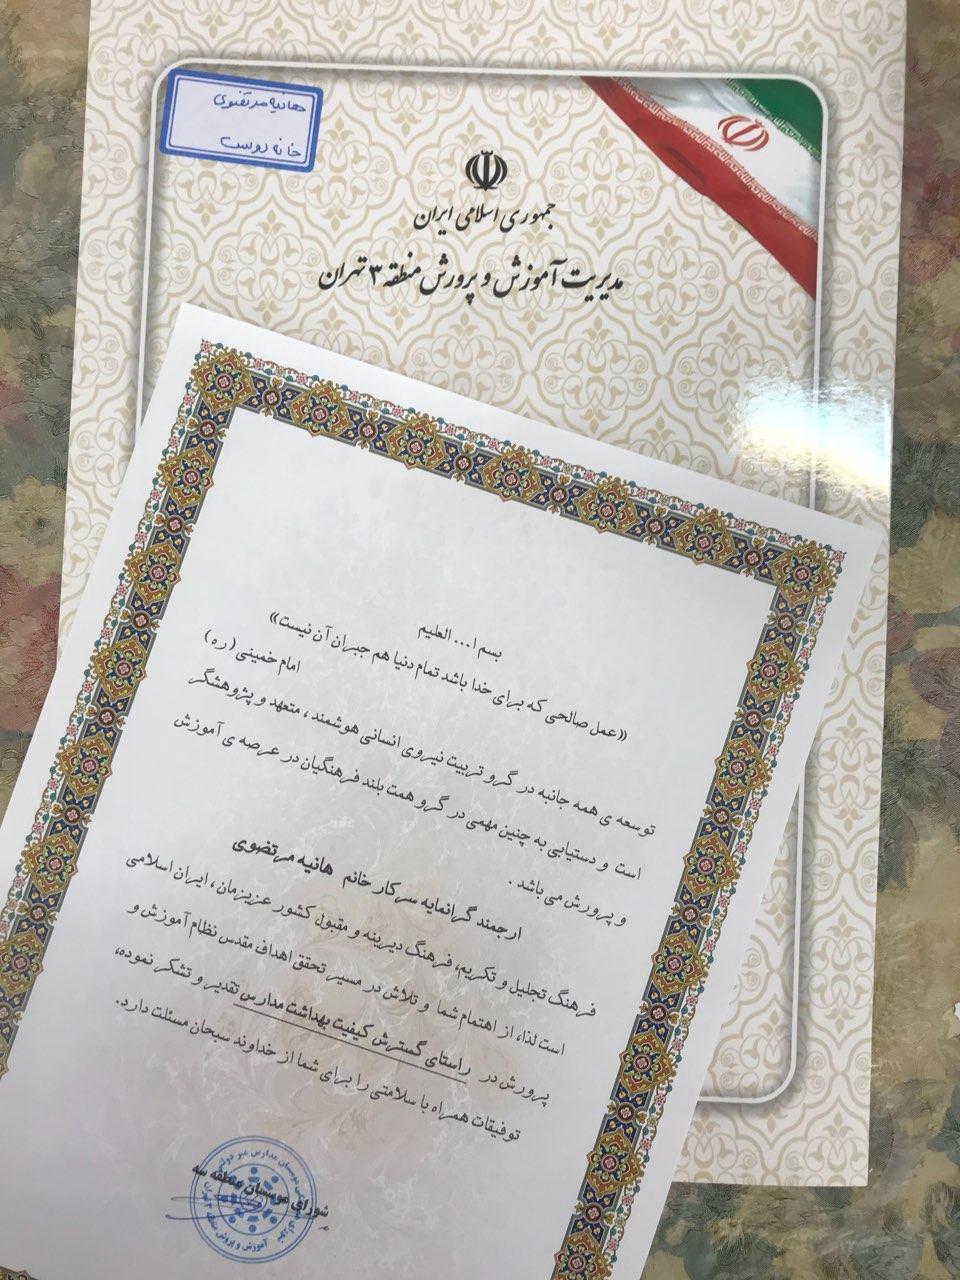 هانیه مرتضوی
خانه دوست
جمهوری اسلامی ایران
مدیریت آموزش و پرورش منطقه ۳ تهران
بسم ا... العلیم
«عمل صالحی که برای خدا باشد تمام دنیا هم جبران آن نیست»
امام خمینی (ره)
توسعه ی همه جانبه در گرو تربیت نیروی انسانی هوشمند، متعهد و پژوهشگر
است و دستیابی به چنین مهمی در گرو همت بلند فرهنگیان در عرصه ی آموزش
و پرورش می باشد .
ارجمند گرانمایه سرکار خانم هانیه مرتضوی
فرهنگ تجلیل و تکریم، فرهنگ دیرینه و مقبول کشور عزیزمان، ایران اسلامی
است لذا، از اهتمام شما و تلاش در مسیر تحقق اهداف مقدس نظام آموزش و
پرورش در راستای گسترش کیفیت بهداشت مدارس تقدیر و تشکر نموده،
توفیقات همراه با سلامتی را برای شما از خداوند سبحان مسئلت دارد.
شورای موسسان منطقه سه
موسسان مدارس غیر دولتی
آموزش و پرورش منطقه ۳ تهران